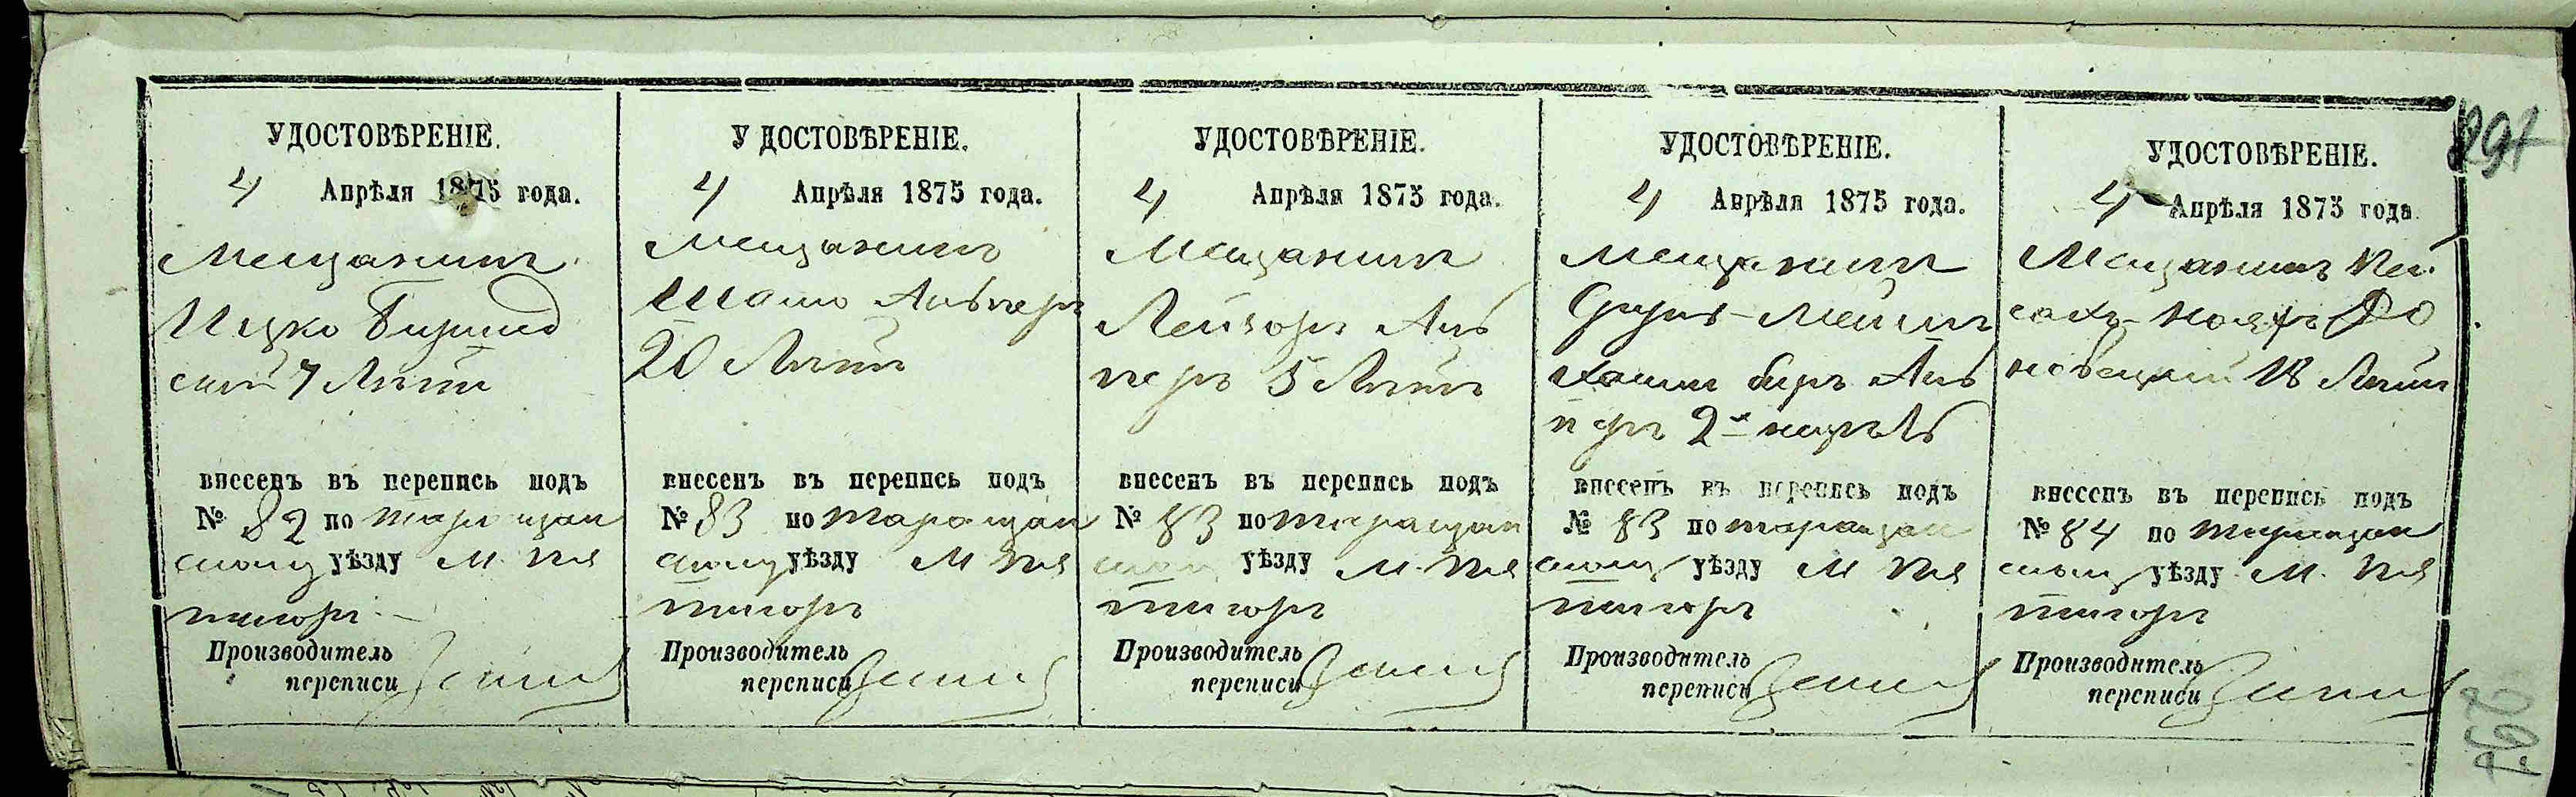 УДОСТОВѢРЕНІЕ.
4 Апрѣля 1875 года.
Мещанинъ
Ицко
7 Лѣтъ
внесенъ въ перепись подъ
№ 82 по Таращан
скому уѣзду М. Пя
тигоръ
Производитель
переписи
УДОСТОВѢРЕНІЕ.
4 Апрѣля 1875 года.
Мещанинъ
Альперъ
20 Лѣтъ
внесенъ въ перепись подъ
№ 83 по Таращан
скому уѣзду М Пя
тигоръ
Производитель
переписи
УДОСТОВѢРЕНІЕ.
4 Апрѣля 1875 года.
Мещанинъ
Лейзоръ Аль
перъ 5 Лѣтъ
внесенъ въ перепись подъ
№ 83 по Таращан
скому уѣзду М. Пя
тигоръ
Производитель
переписи
УДОСТОВѢРЕНІЕ.
4 Апрѣля 1875 года.
Мещанинъ
Аль
перъ 2х
внесенъ въ перепись подъ
№ 83 по Таращан
скому уѣзду М Пя
тигоръ
Производитель
переписи
УДОСТОВѢРЕНІЕ.
4 Апрѣля 1875 года.
Мещанинъ Пей
сахъ
18 Лѣтъ
внесенъ въ перепись подъ
№ 84 по Таращан
скому уѣзду М. Пя
тигоръ
Производитель
переписи
297